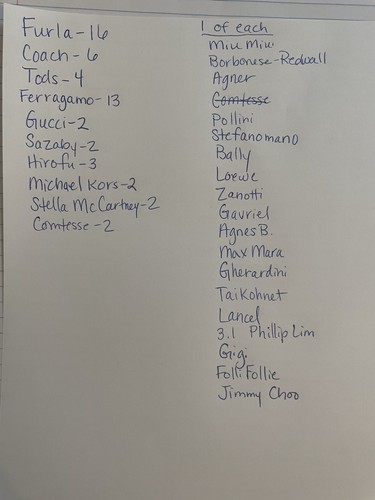 Furla - 16
Coach - 6
Tods - 4
Ferragamo - 13
Gucci - 2
Sazaby - 2
Hirofu - 3
Michael Kors - 2
Stella McCartney - 2
Comtesse - 2
1 of each
Miu Miu
Borbonese - Redwall
Agner
Comtesse
Pollini
Stefanomano
Bally
Loewe
Zanotti
Gavriel
Agnes B.
Max Mara
Gherardini
Tai Kohnet
Lancel
3.1 Phillip Lim
Gigi
Folli Follie
Jimmy Choo